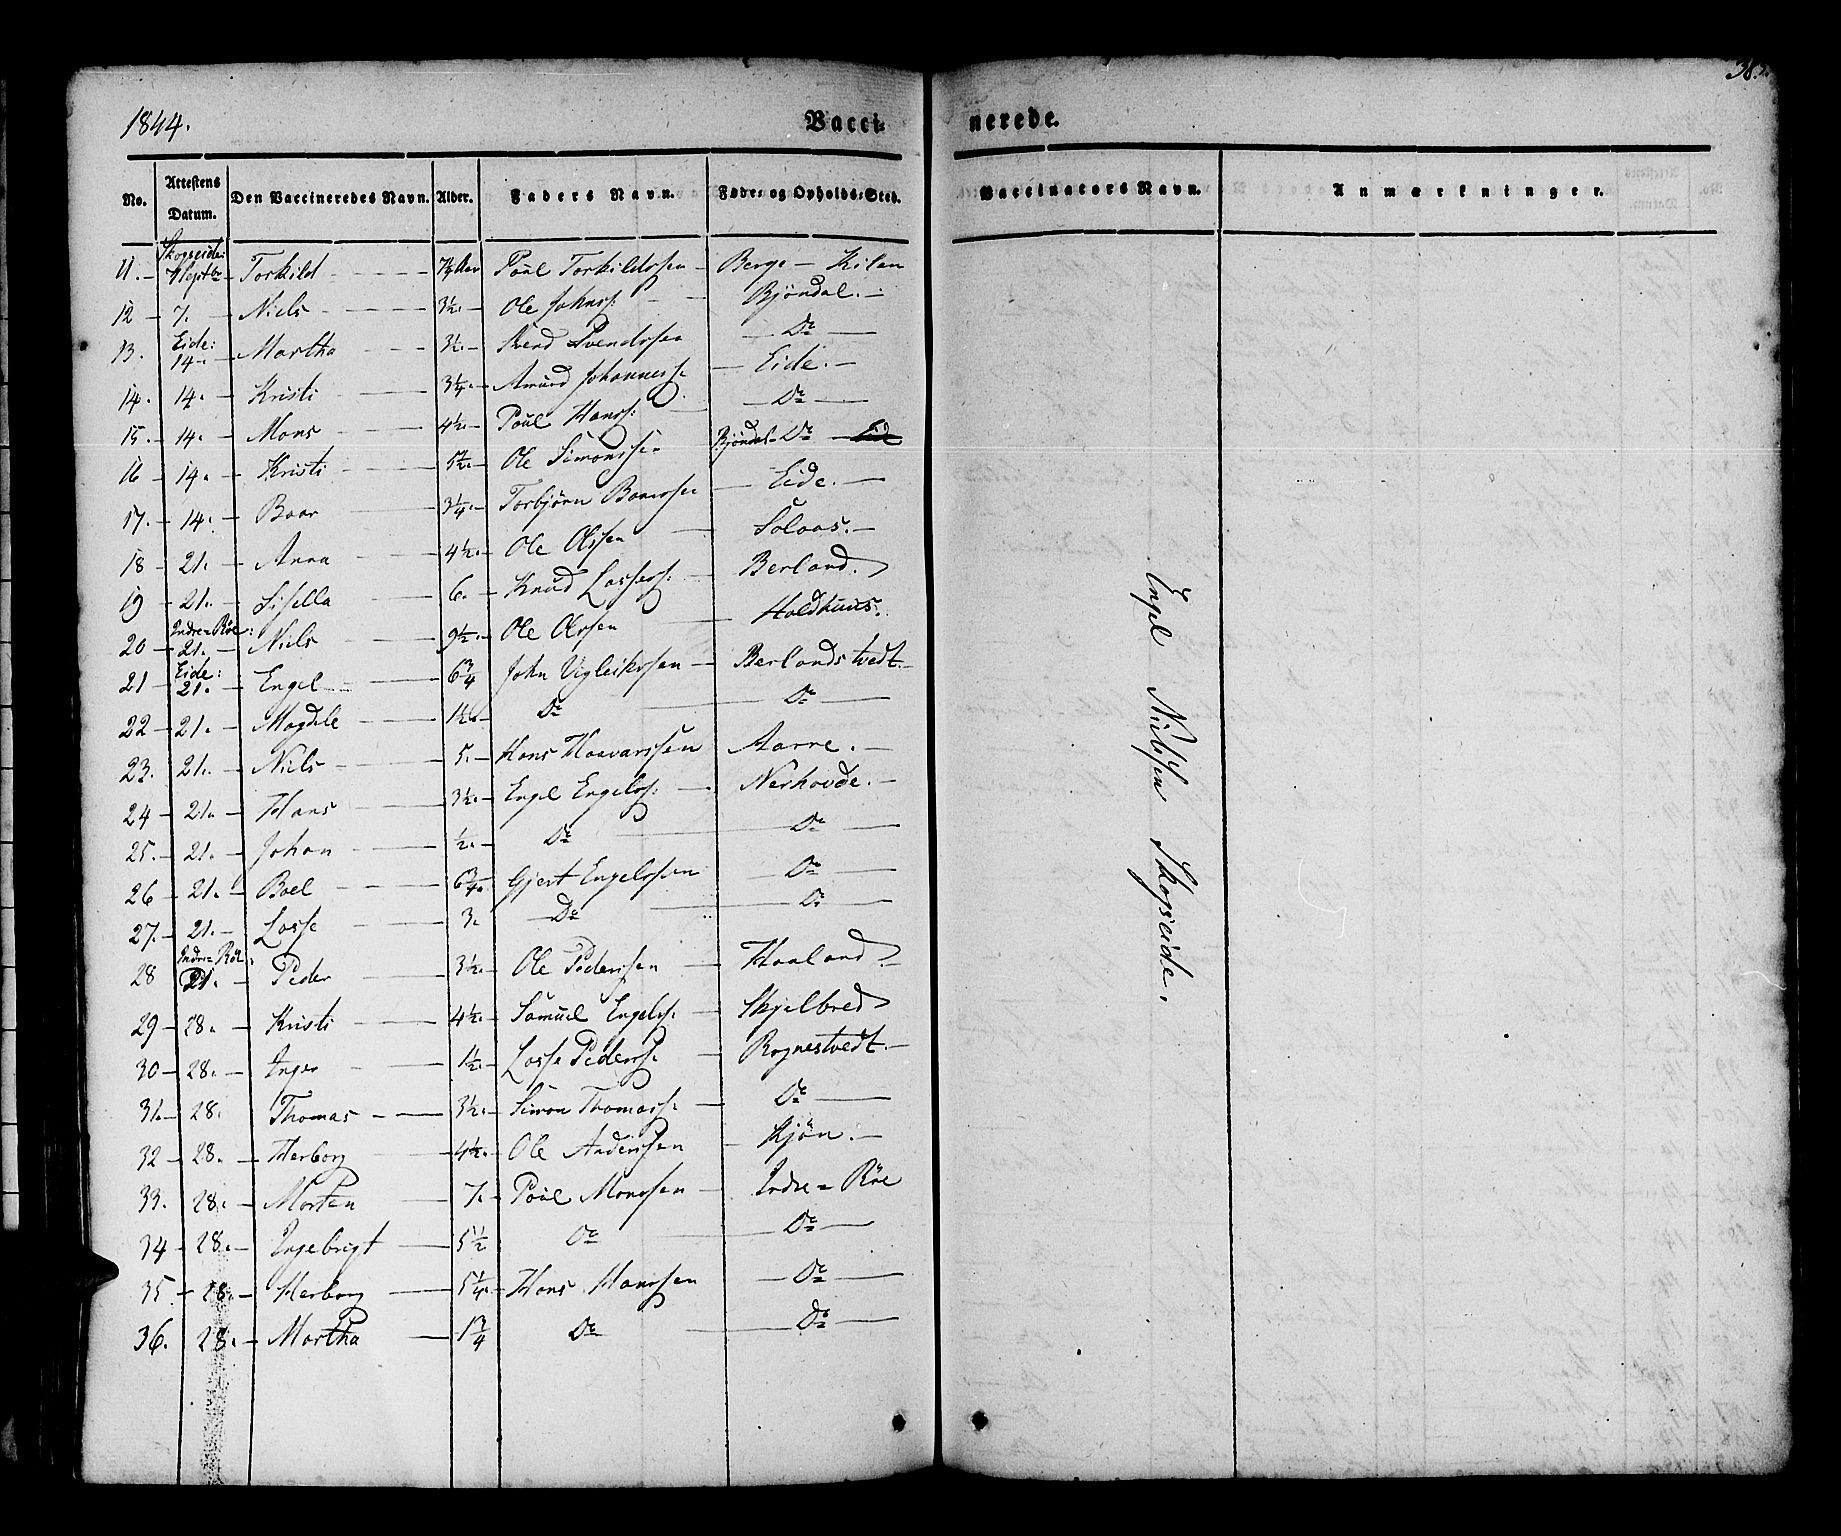 38
1844.
Vacci-
nerede.
No. Attestens Datum. Den Vaccineredes Navn. Alder. Faders Navn. Føde- og Opholds-Sted. Vaccinators Navn. Anmærkninger.
11. Skogseide: 7 Septbr Torkild Poul Torkildssen Berge Kilen
12 7. Niels 3½. Ole Johnss: Bjöndal.
13. Eide: 14. Martha 3½. Svendssen Do
14. 14. Kristi 3¼. Amund Johanness. Eide.
15. 14. Mons 4½. Poul Hanss: Do
16 14. Kristi Ole Simonssen Bjöndal Do Eide
17. 14. Baar 3¼. Torbjörn Baarssen Eide.
18 21. Anna 4½. Ole Olssen Solaas.
19 21. Sisella 6. Knud Lassess: Berland.
20 Indre-Röe: 21. Niels 9½. Ole Olssen Holdhuus.
21 Eide: 21. Engel 6¾ John Vigleikssen Berlandstvedt.
22 21. Magdele 1½. Do Do
23. 21. Niels 5. Hans Haavarssen Aarre.
24 21. Hans 3½. Engel Engelss: Nerhovde.
25. 21. Johan ½. Do Do
26 21. Boel 6¾. Gjert Engelssen Do
27. 21. Lasse 3. Do Do
28 Indre Röe: 21. Peder 3½. Ole Pederssen Haaland
29 28. Kristi 4½. Samuel Engelss. Skjelbred
30 28. Inger 1½. Lasse Pederss. Rognestvedt.
31. 28. Thomas 3½. Simon Thomass. Do
32 28. Herborg 4½. Ole Anderssen Kjön.
33. 28. Morten 7. Poul Monssen Indre-Röe
34 28. Ingebrigt 5½ Do Do
35 28. Herborg 5¼. Hans Hanssen Do
36. 28. Martha 1¾ Do Do
Engel Nielssen Skogseide.